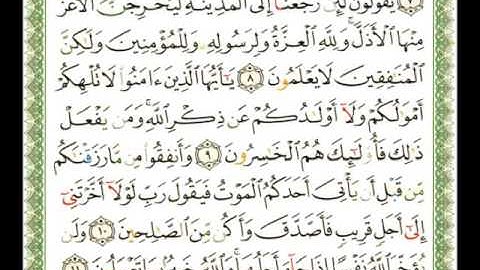 ٧ يَقُولُونَ لَئِن رَّجَعْنَآ إِلَى ٱلْمَدِينَةِ لَيُخْرِجَنَّ ٱلْأَعَزُّ
مِنْهَا ٱلْأَذَلَّ ۚ وَلِلَّهِ ٱلْعِزَّةُ وَلِرَسُولِهِۦ وَلِلْمُؤْمِنِينَ وَلَٰكِنَّ
ٱلْمُنَٰفِقِينَ لَا يَعْلَمُونَ ٨ يَٰٓأَيُّهَا ٱلَّذِينَ ءَامَنُوا۟ لَا تُلْهِكُمْ
أَمْوَٰلُكُمْ وَلَآ أَوْلَٰدُكُمْ عَن ذِكْرِ ٱللَّهِ ۚ وَمَن يَفْعَلْ
ذَٰلِكَ فَأُو۟لَٰٓئِكَ هُمُ ٱلْخَٰسِرُونَ ٩ وَأَنفِقُوا۟ مِن مَّا رَزَقْنَٰكُم
مِّن قَبْلِ أَن يَأْتِىَ أَحَدَكُمُ ٱلْمَوْتُ فَيَقُولَ رَبِّ لَوْلَآ أَخَّرْتَنِىٓ
إِلَىٰٓ أَجَلٍ قَرِيبٍ فَأَصَّدَّقَ وَأَكُن مِّنَ ٱلصَّٰلِحِينَ ١٠ وَلَن
يُؤَخِّرَ ٱللَّهُ نَفْسًا إِذَا جَآءَ أَجَلُهَا ۚ وَٱللَّهُ خَبِيرٌۢ بِمَا تَعْمَلُونَ ١١